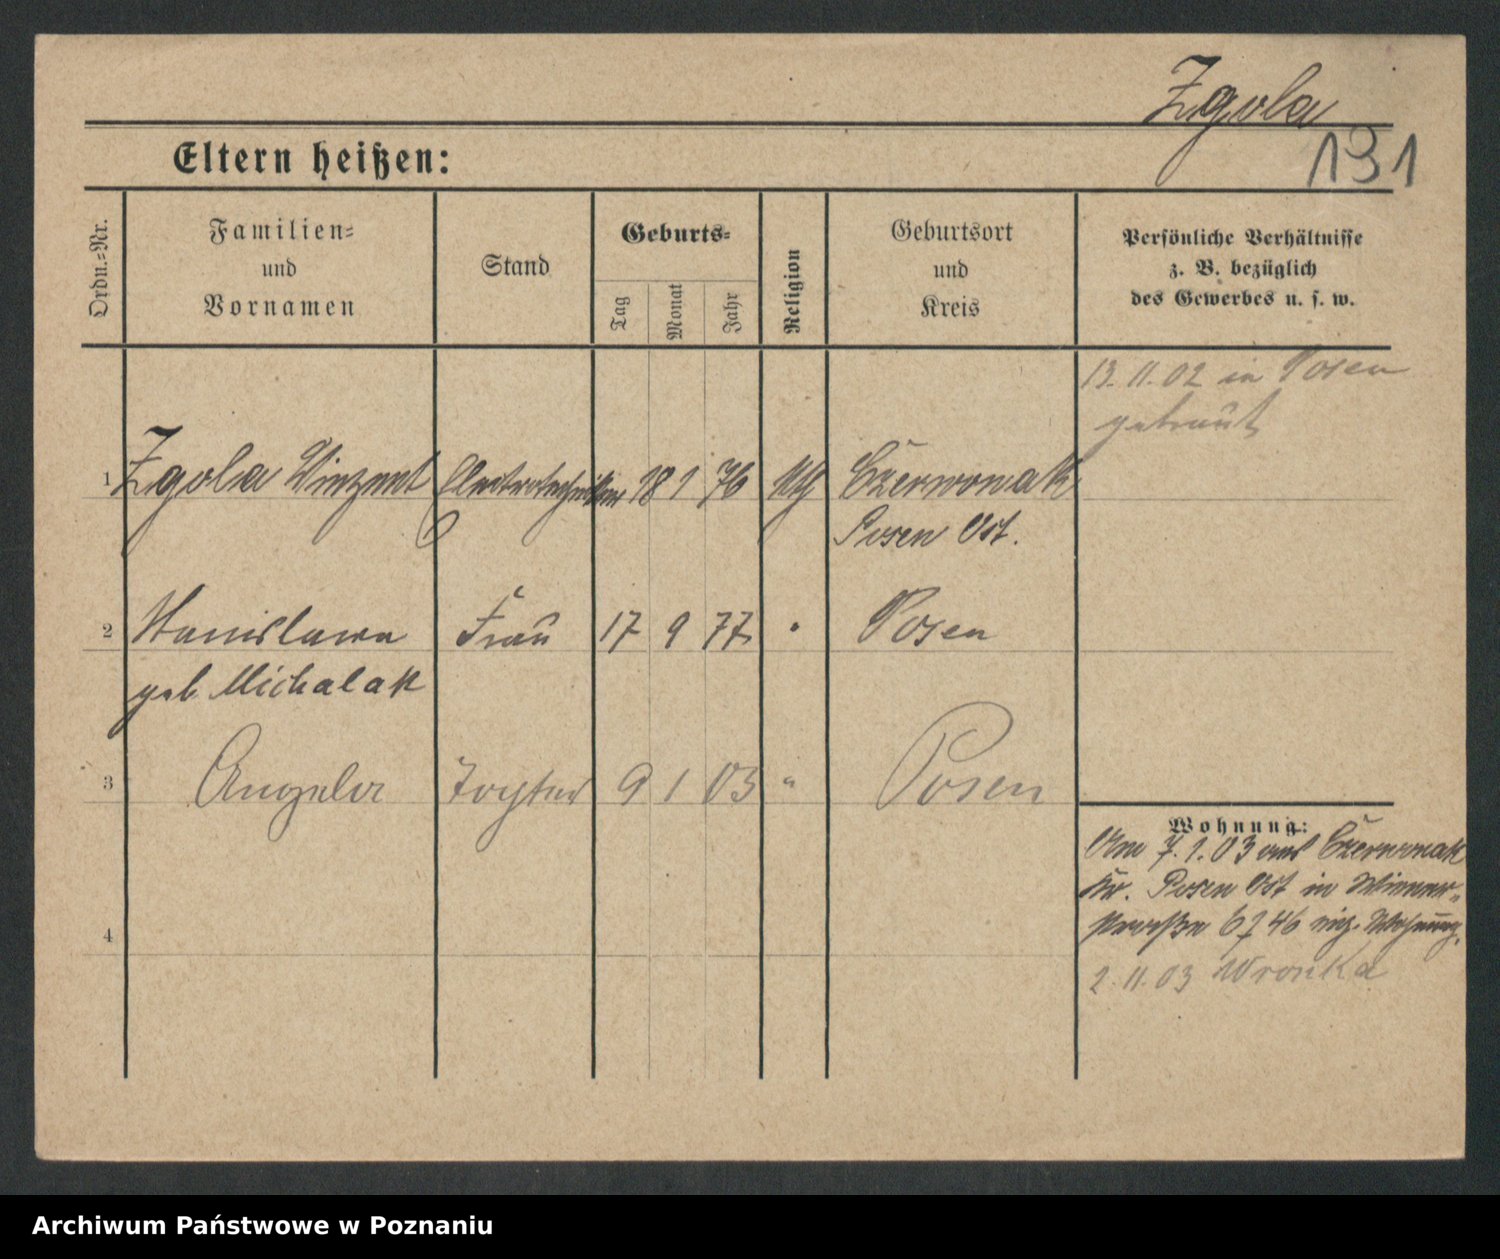 Zgola
131
Eltern heißen:
Ordn.-Nr.
Familien-
und
Vornamen
Stand
Geburts-
Tag
Monat
Jahr
Religion
Geburtsort
und
Kreis
Persönliche Verhältnisse
z. B. bezüglich
des Gewerbes u. s. w.
13.11.02 in Posen
getraut
1 Zgola Vinzent Electrotechniker 18 1 76 kth Czerwonak
Posen Ost.
2 Stanislawa Frau 17 9 77 " Posen
geb. Michalak
3 Angela Tochter 9 1 03 " Posen
4
Wohnung:
Am 7.1.03 aus Czerwonak
Kr. Posen Ost in Wiener-
straße 6 46 Wohnung.
2.11.03 Wronka
Archiwum Państwowe w Poznaniu